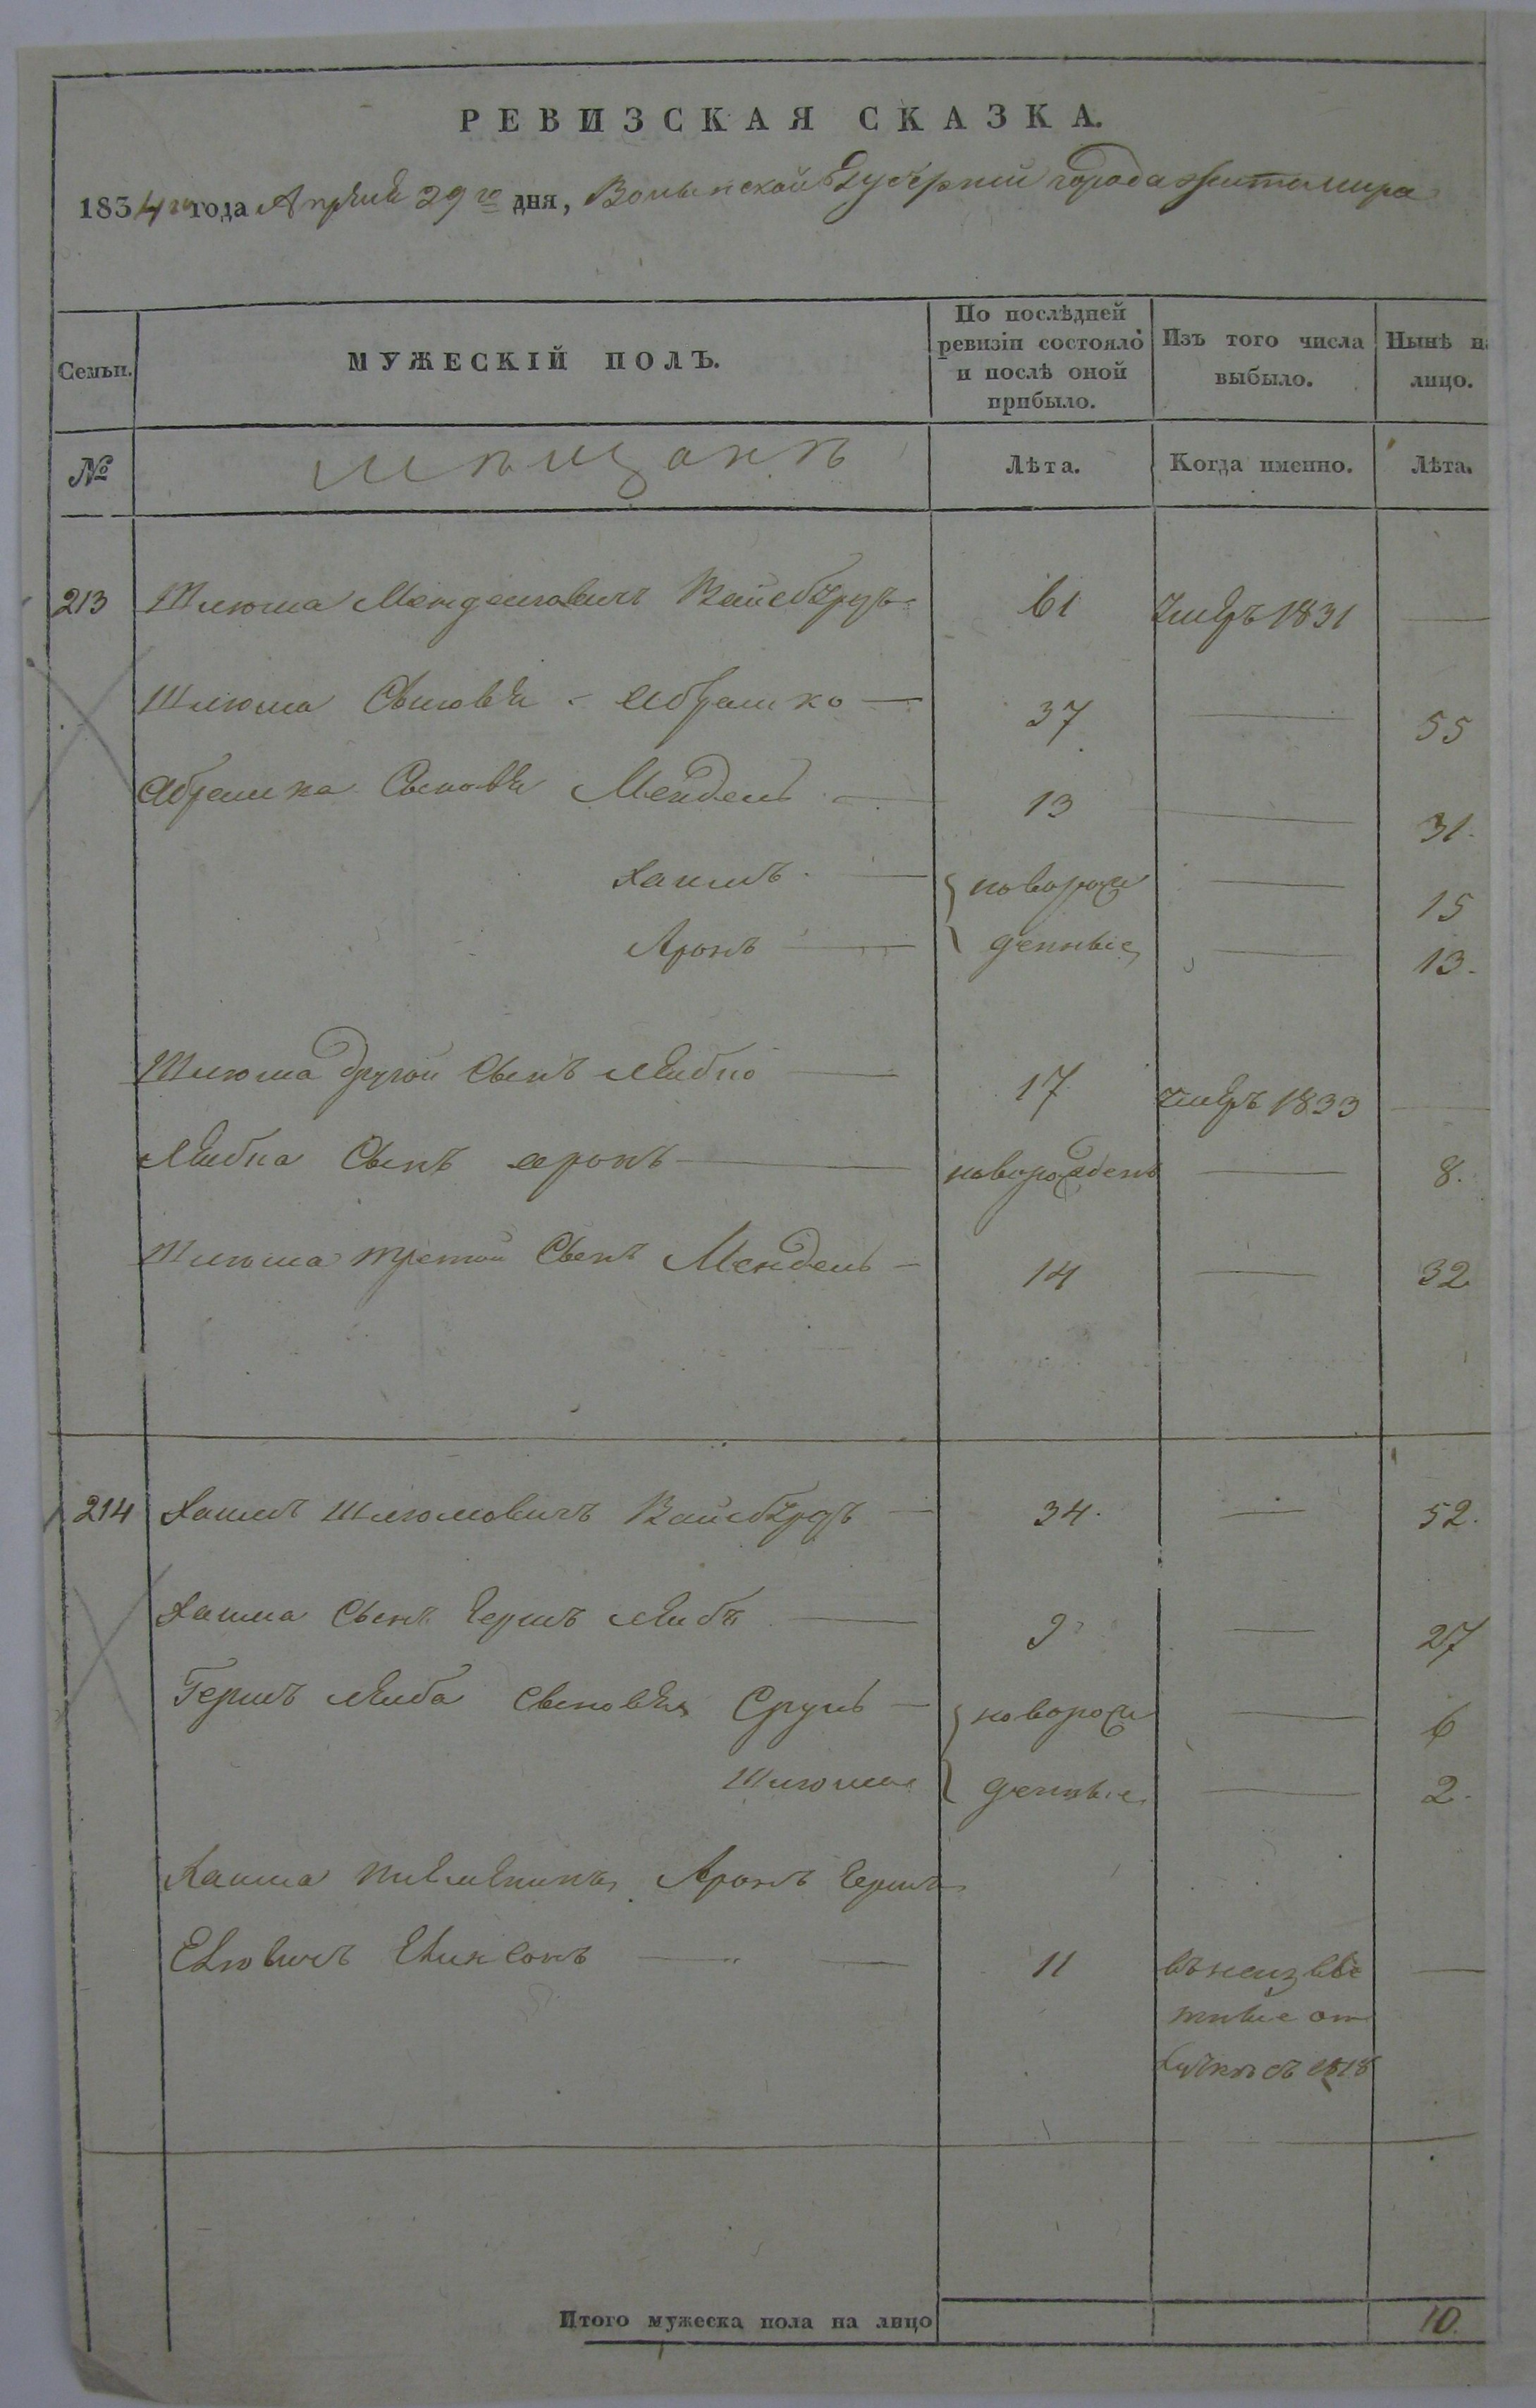 РЕВИЗСКАЯ СКАЗКА.
1834го года Апрѣля 29го дня, Волынской Губерніи города Житомира
Семьи. МУЖЕСКІЙ ПОЛЪ. По послѣдней ревизіи состояло и послѣ оной прибыло. Изъ того числа выбыло. Нынѣ на лицо.
№ Мѣщанъ Лѣта. Когда именно. Лѣта.
213 Шлюма Менделиовичъ Вайсбурдъ 61 Умеръ 1831 —
Шлюма Сыновья Абрашко — 37 — 55
Абрашка Сыновья Мендель — 13 — 31.
Хаимъ — новорож — 15
Аронъ — денные — 13.
Шлюма другой Сынъ Лейбко — 17 Умеръ 1833 —
Лейбка Сынъ Аронъ — новорожденъ — 8.
Шлюма третій Сынъ Мендель — 14 — 32
214 Хаимъ Шлюмовичъ Вайсбурдъ — 34. — 52.
Хаима Сынъ Гершъ Лейба — 9 — 27
Гершъ Лейба Сыновья Сруль — новорож — 6
Шлюма денные — 2.
Хаима племенникъ Аронъ Гершъ
11 въ неизвѣ —
стные от
лучкѣ съ 1818
Итого мужеска пола на лицо 10.